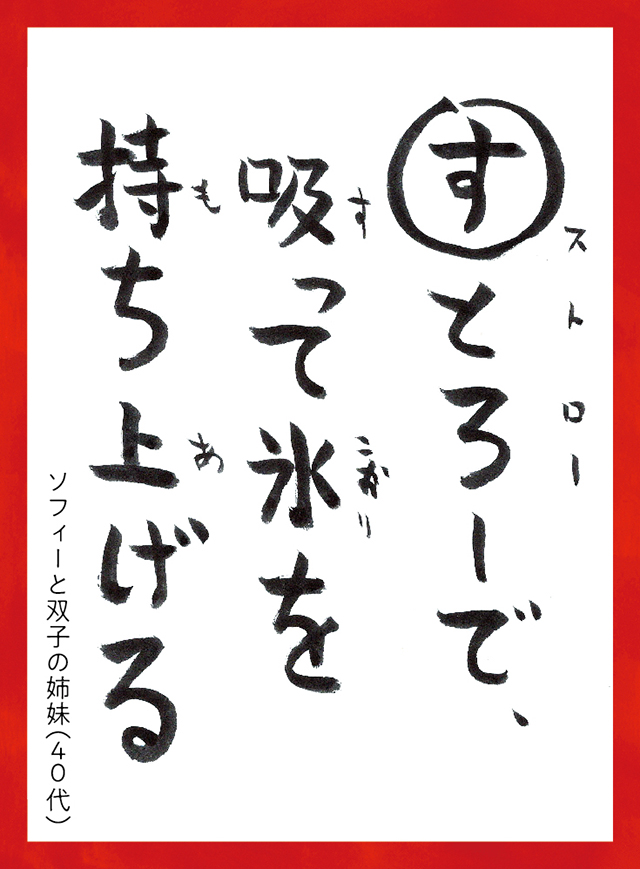 すとろーで、
ストロー
吸って氷を
す
こおり
持ち上げる
も
あ
ソフィーと双子の姉妹(40代)